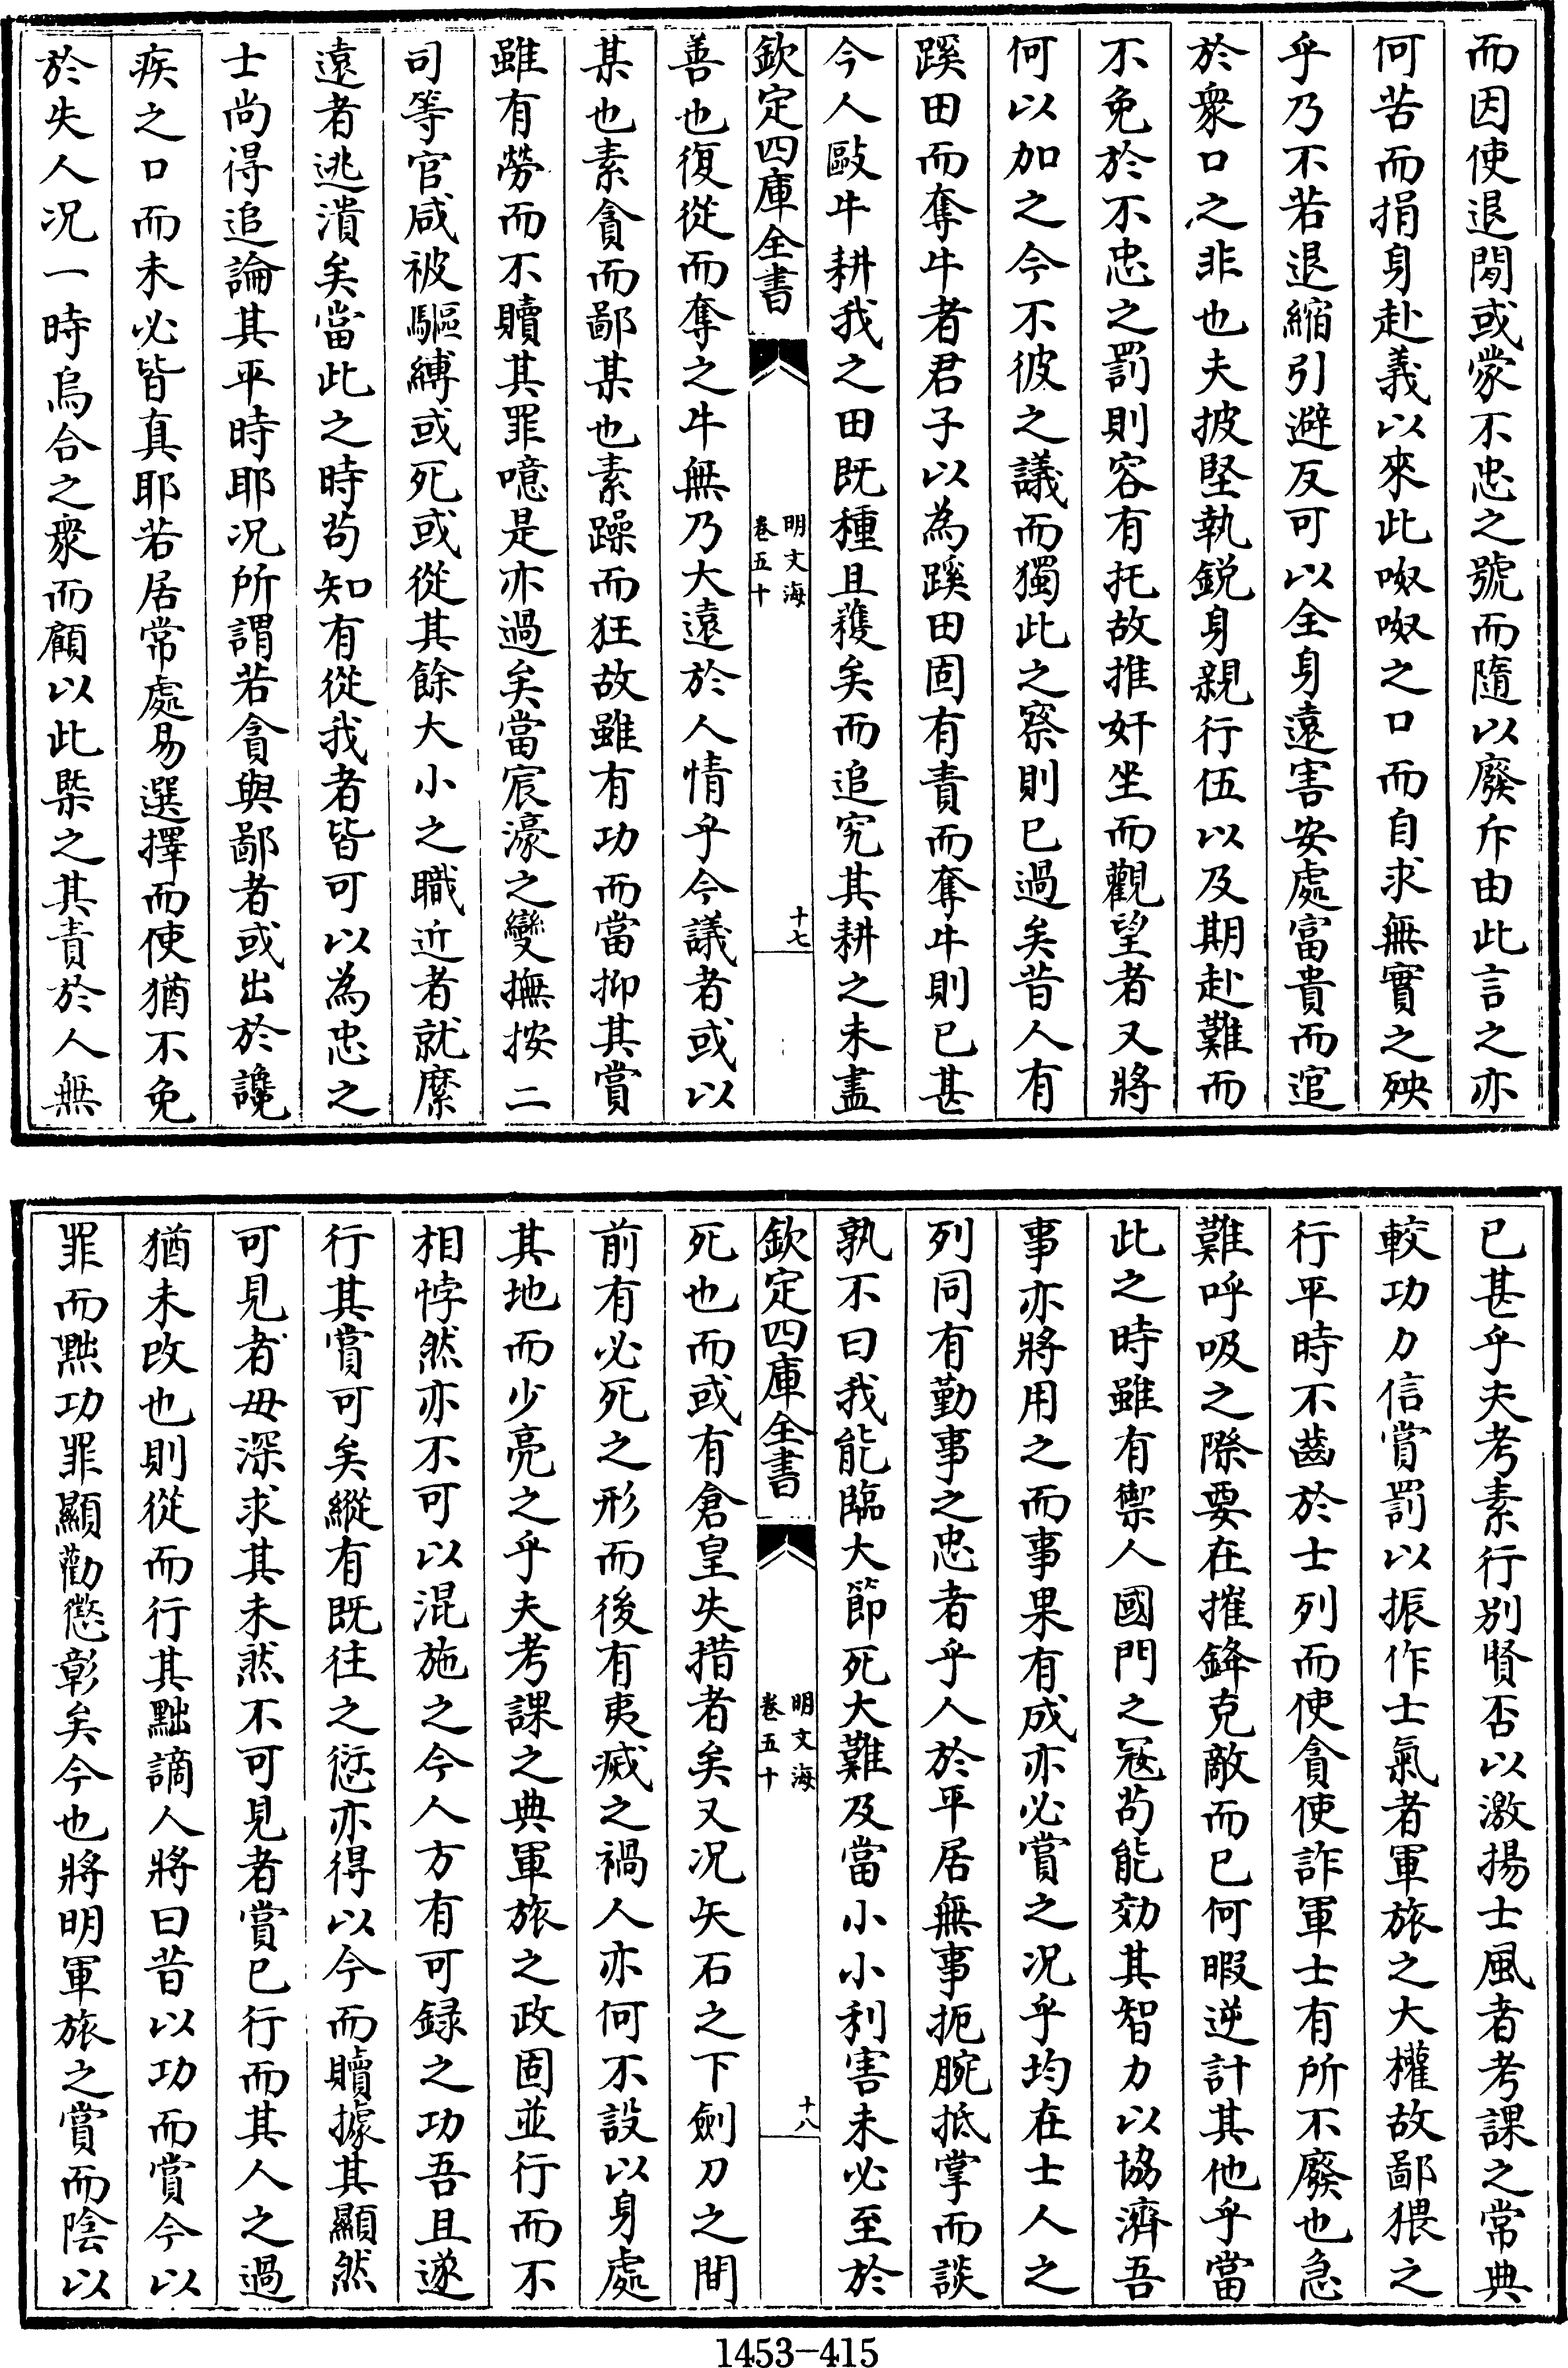 而因使退閒或蒙不忠之號而隨以廢斥由此言之亦
何苦而捐身赴義以來此呶呶之口而自求無實之殃
乎乃不若退縮引避反可以全身遠害安處富貴而逭
於衆口之非也夫披堅執鋭身親行伍以及期赴難而
不免於不忠之罰則容有托故推奸坐而觀望者又將
何以加之今不彼之議而獨此之察則已過矣昔人有
蹊田而奪牛者君子以為蹊田固有責而奪牛則已甚
今人毆牛耕我之田既種且穫矣而追究其耕之未盡
欽定四庫全書
明文海
卷五十
十七
善也復從而奪之牛無乃大遠於人情乎今議者或以
某也素貪而鄙某也素躁而狂故雖有功而當抑其賞
雖有勞而不贖其罪噫是亦過矣當宸濠之變撫按二
司等官咸被驅縛或死或從其餘大小之職近者就縻
遠者逃潰矣當此之時茍知有從我者皆可以為忠之
士尚得追論其平時耶况所謂若貪與鄙者或出於讒
疾之口而未必皆真耶若居常處易選擇而使猶不免
於失人况一時烏合之衆而顧以此槩之其責於人無
已甚乎夫考素行别賢否以激揚士風者考課之常典
較功力信賞罰以振作士氣者軍旅之大權故鄙猥之
行平時不齒於士列而使貪使詐軍士有所不廢也急
難呼吸之際要在摧鋒克敵而已何暇逆計其他乎當
此之時雖有禦人國門之冦茍能効其智力以協濟吾
事亦將用之而事果有成亦必賞之况乎均在士人之
列同有勤事之忠者乎人於平居無事扼腕抵掌而談
孰不曰我能臨大節死大難及當小小利害未必至於
欽定四庫全書
明文海
卷五十
十八
死也而或有倉皇失措者矣又况矢石之下劍刀之間
前有必死之形而後有夷滅之禍人亦何不設以身處
其地而少亮之乎夫考課之典軍旅之政固並行而不
相悖然亦不可以混施之今人方有可録之功吾且遂
行其賞可矣縱有既往之愆亦得以今而贖據其顯然
可見者毋深求其未然不可見者賞已行而其人之過
猶未改也則從而行其黜謫人將曰昔以功而賞今以
罪而黜功罪顯勸懲彰矣今也將明軍旅之賞而陰以
1453-415